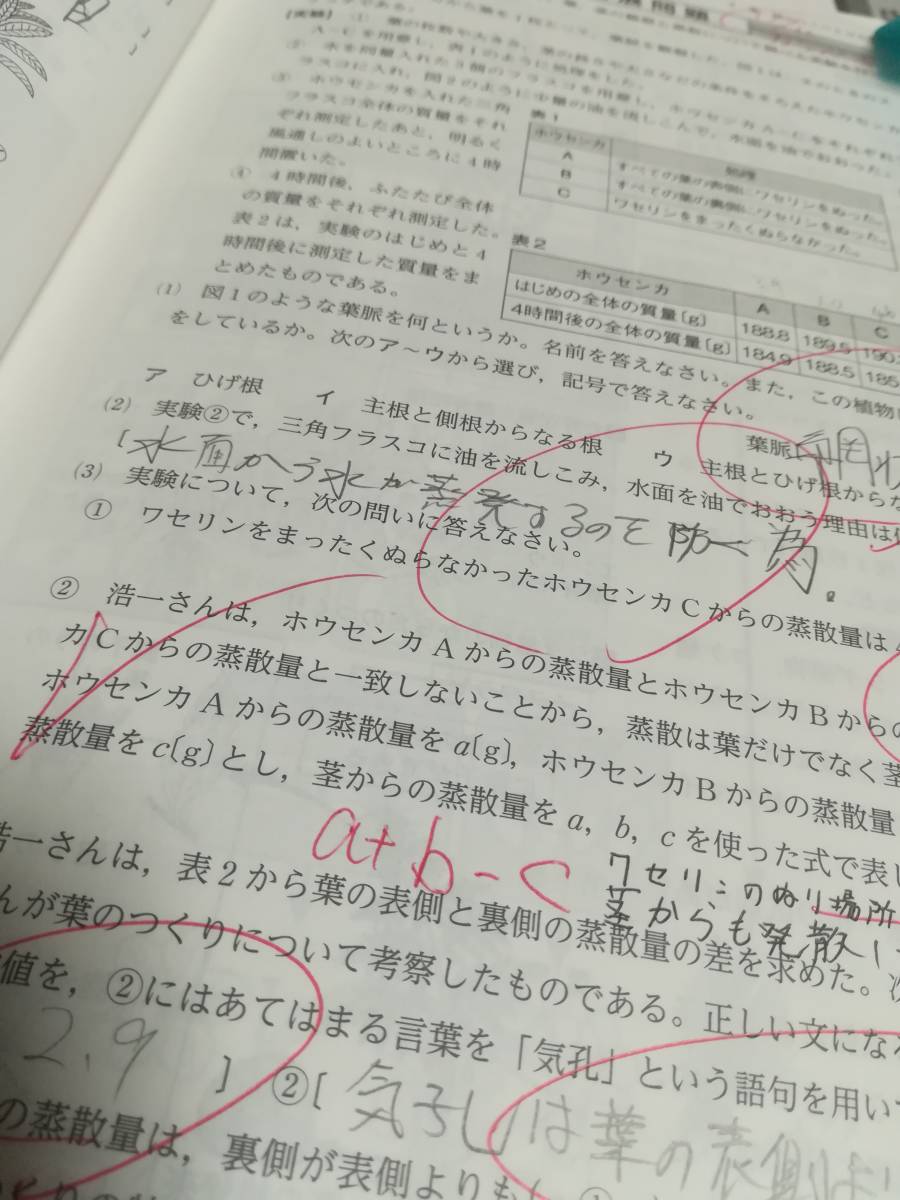 表1
ホウセンカ 処理
A すべての葉の表側にワセリンをぬった。
B すべての葉の裏側にワセリンをぬった。
C ワセリンをまったくぬらなかった。
③ ホウセンカを入れた三角
フラスコ全体の質量をそれ
ぞれ測定したあと，明るく
風通しのよいところに4時
間置いた。
④ 4時間後，ふたたび全体
の質量をそれぞれ測定した。
表2は，実験のはじめと4
時間後に測定した質量をま
とめたものである。
表2
ホウセンカ A B C
はじめの全体の質量〔g〕 188.8 189.5 190.
4時間後の全体の質量〔g〕 184.9 188.5 185
(1) 図1のような葉脈を何というか。名前を答えなさい。また，この植物
をしているか。次のア～ウから選び，記号で答えなさい。
葉脈
ア ひげ根 イ 主根と側根からなる根 ウ 主根とひげ根からな
(2) 実験②で，三角フラスコに油を流しこみ，水面を油でおおう理由は
[水面から水が蒸発するのを防ぐ為。
(3) 実験について，次の問いに答えなさい。
① ワセリンをまったくぬらなかったホウセンカCからの蒸散量は
② 浩一さんは，ホウセンカAからの蒸散量とホウセンカBからの
カCからの蒸散量と一致しないことから，蒸散は葉だけでなく茎
ホウセンカAからの蒸散量をa〔g〕，ホウセンカBからの蒸散量
蒸散量をc〔g〕とし，茎からの蒸散量をa，b，cを使った式で表し
a+b-c
ワセリンのぬり場所
茎からも発散し
浩一さんは，表2から葉の表側と裏側の蒸散量の差を求めた。
んが葉のつくりについて考察したものである。正しい文にな
値を，②にはあてはまる言葉を「気孔」という語句を用い
2.9 ] ②[ 気孔は葉の表側より
の蒸散量は，裏側が表側よりも